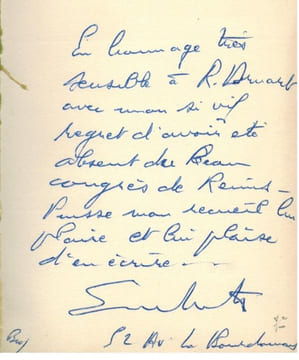 En hommage très
sensible à R. Arnart
avec mon si vif
regret d'avoir été
absent du beau
congrès de Reims -
Puisse mon recueil lui
plaire et lui plaise
d'en écrire
52 Av. La Bourdonnais